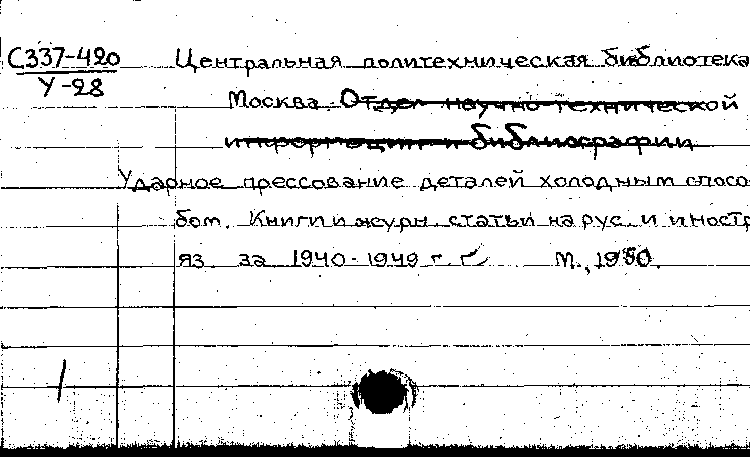 С337-420 Центральная политехническая библиотека
У-28
Москва. Отдел научно-технической
информации и библиографии
Ударное прессование деталей холодным спосо-
бом. Книги и журн. статьи на рус. и иностр.
яз. за 1940-1949 г.г. М., 1950.